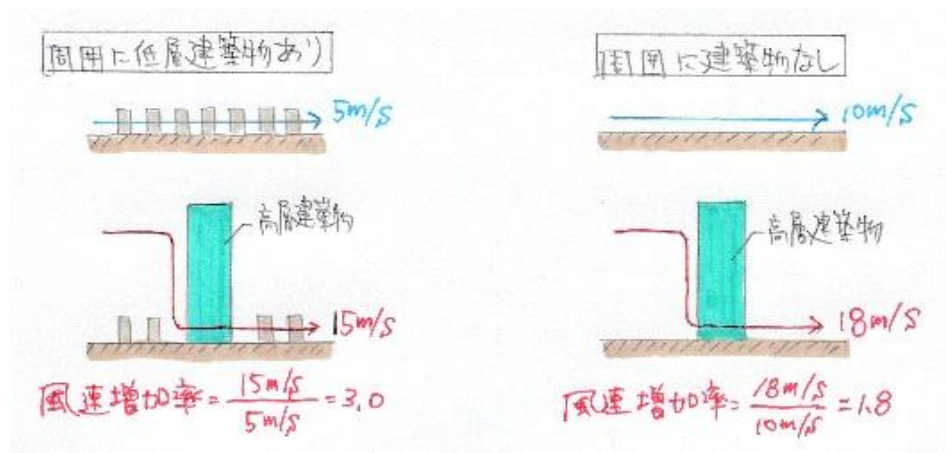 周囲に低層建築物あり
5m/s
高層建築物
15m/s
風速増加率=15m/s/5m/s=3.0
周囲に建築物なし
10m/s
高層建築物
18m/s
風速増加率=18m/s/10m/s=1.8